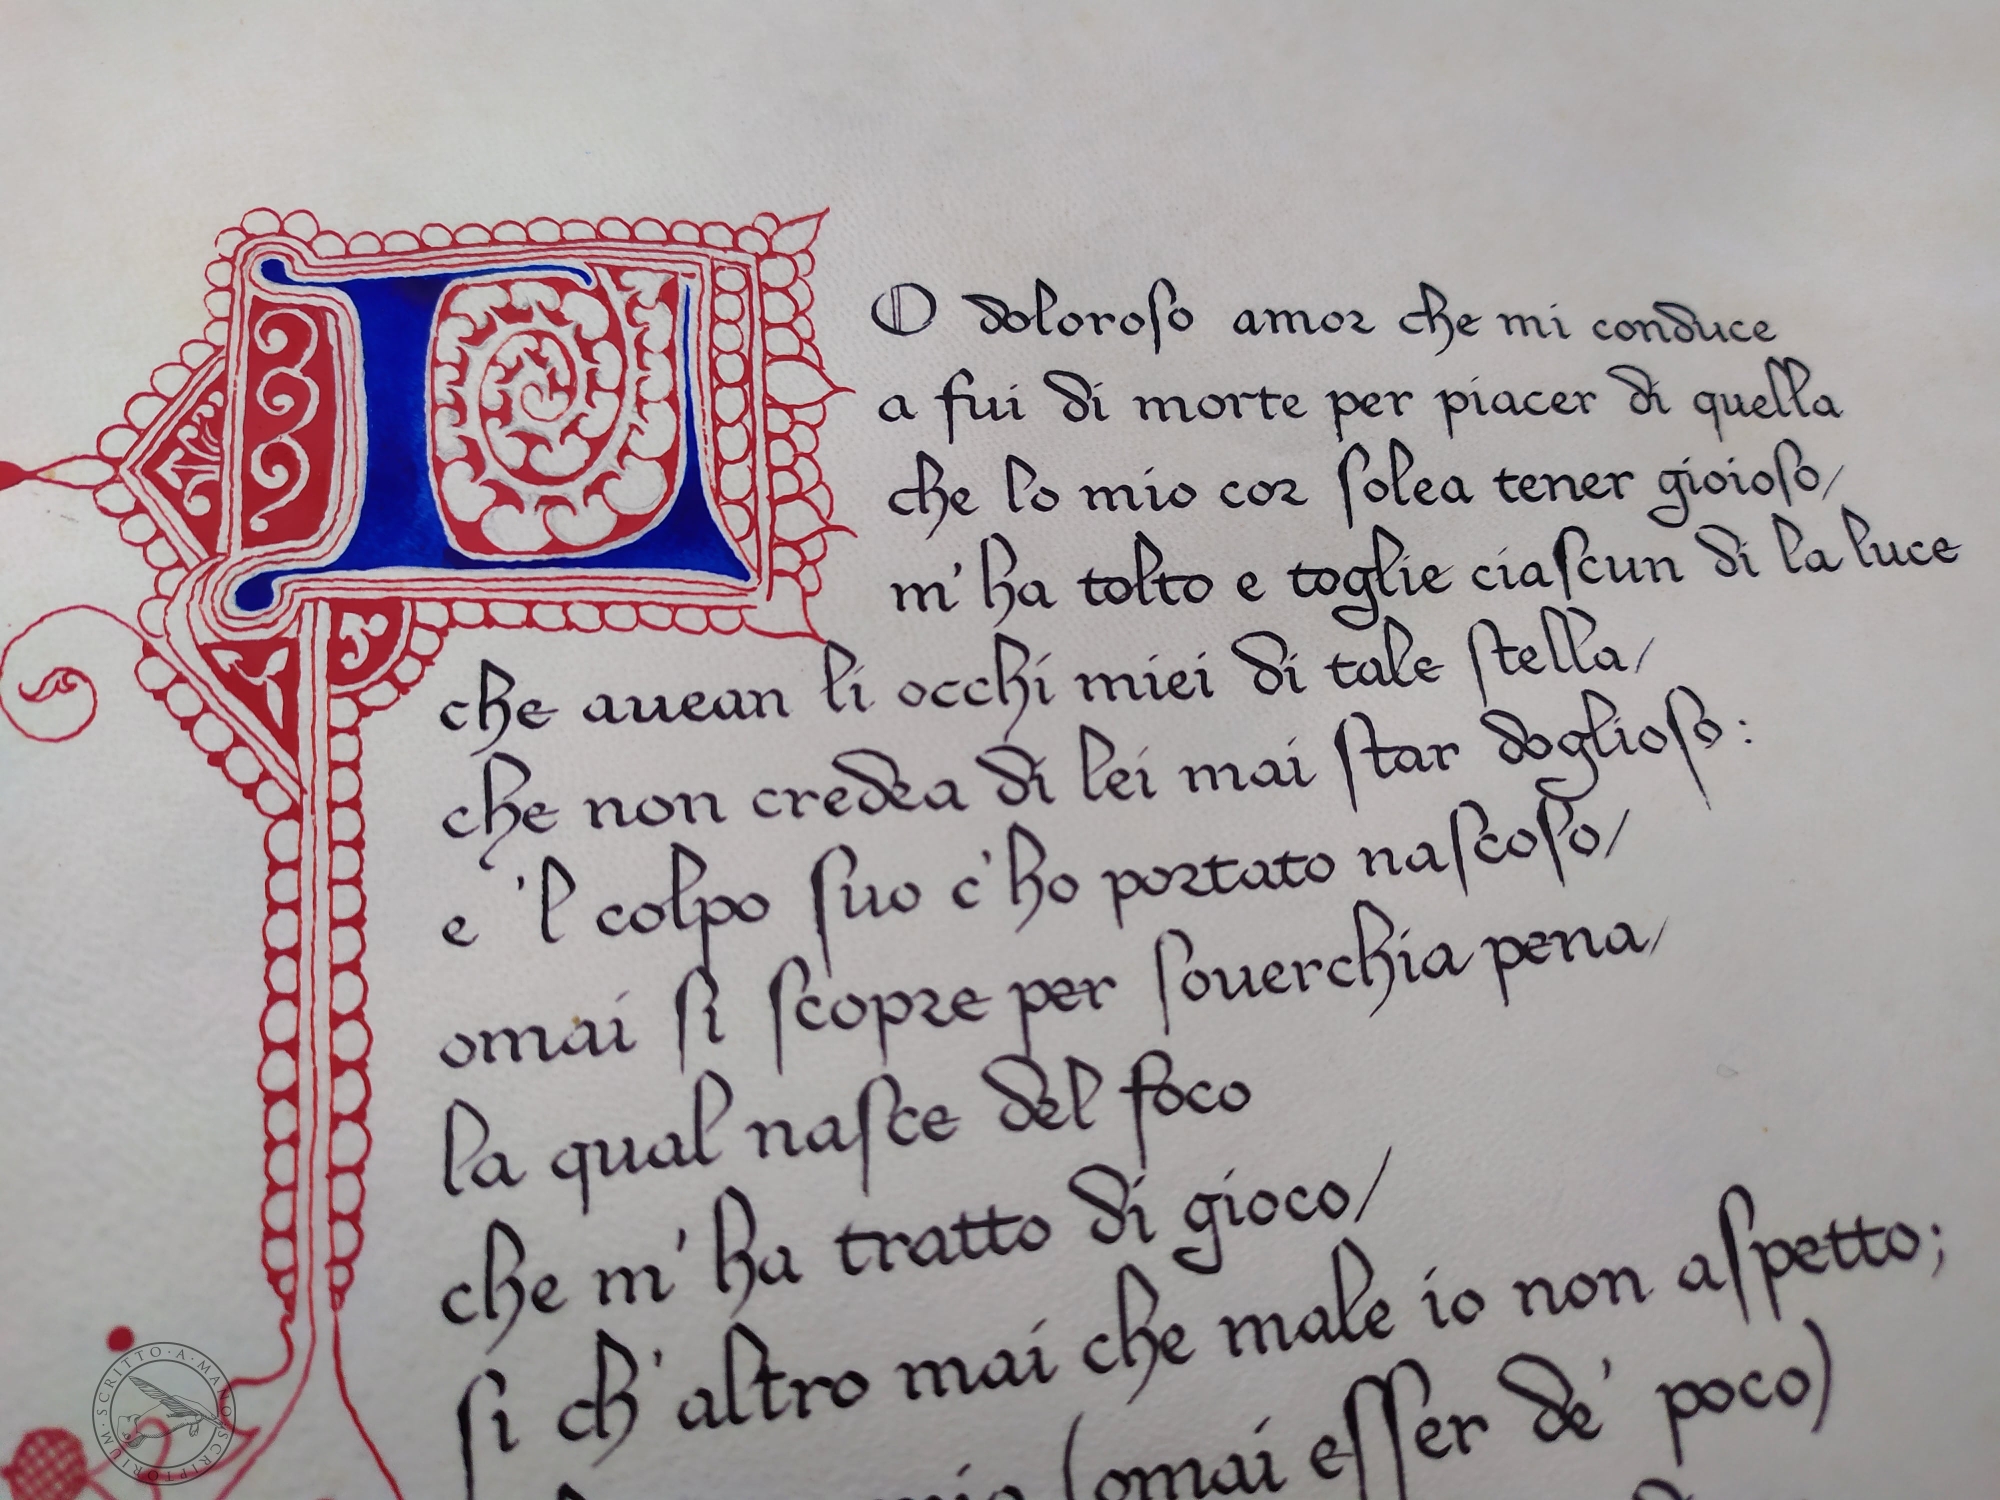 LO doloroſo amor che mi conduce
a fui di morte per piacer di quella
che lo mio cor ſolea tener gioioſo/
m'ha tolto e toglie ciaſcun di la luce
che auean li occhi miei di tale ſtella/
che non credea di lei mai ſtar doglioſo:
e 'l colpo ſuo c'ho portato naſcoſo/
omai ſi ſcopre per ſouerchia pena/
la qual naſce del foco
che m'ha tratto di gioco/
ſi ch'altro mai che male io non aſpetto;
(omai eſſer de' poco)
SCRITTO·A·MANO·SCRIPTORIUM·